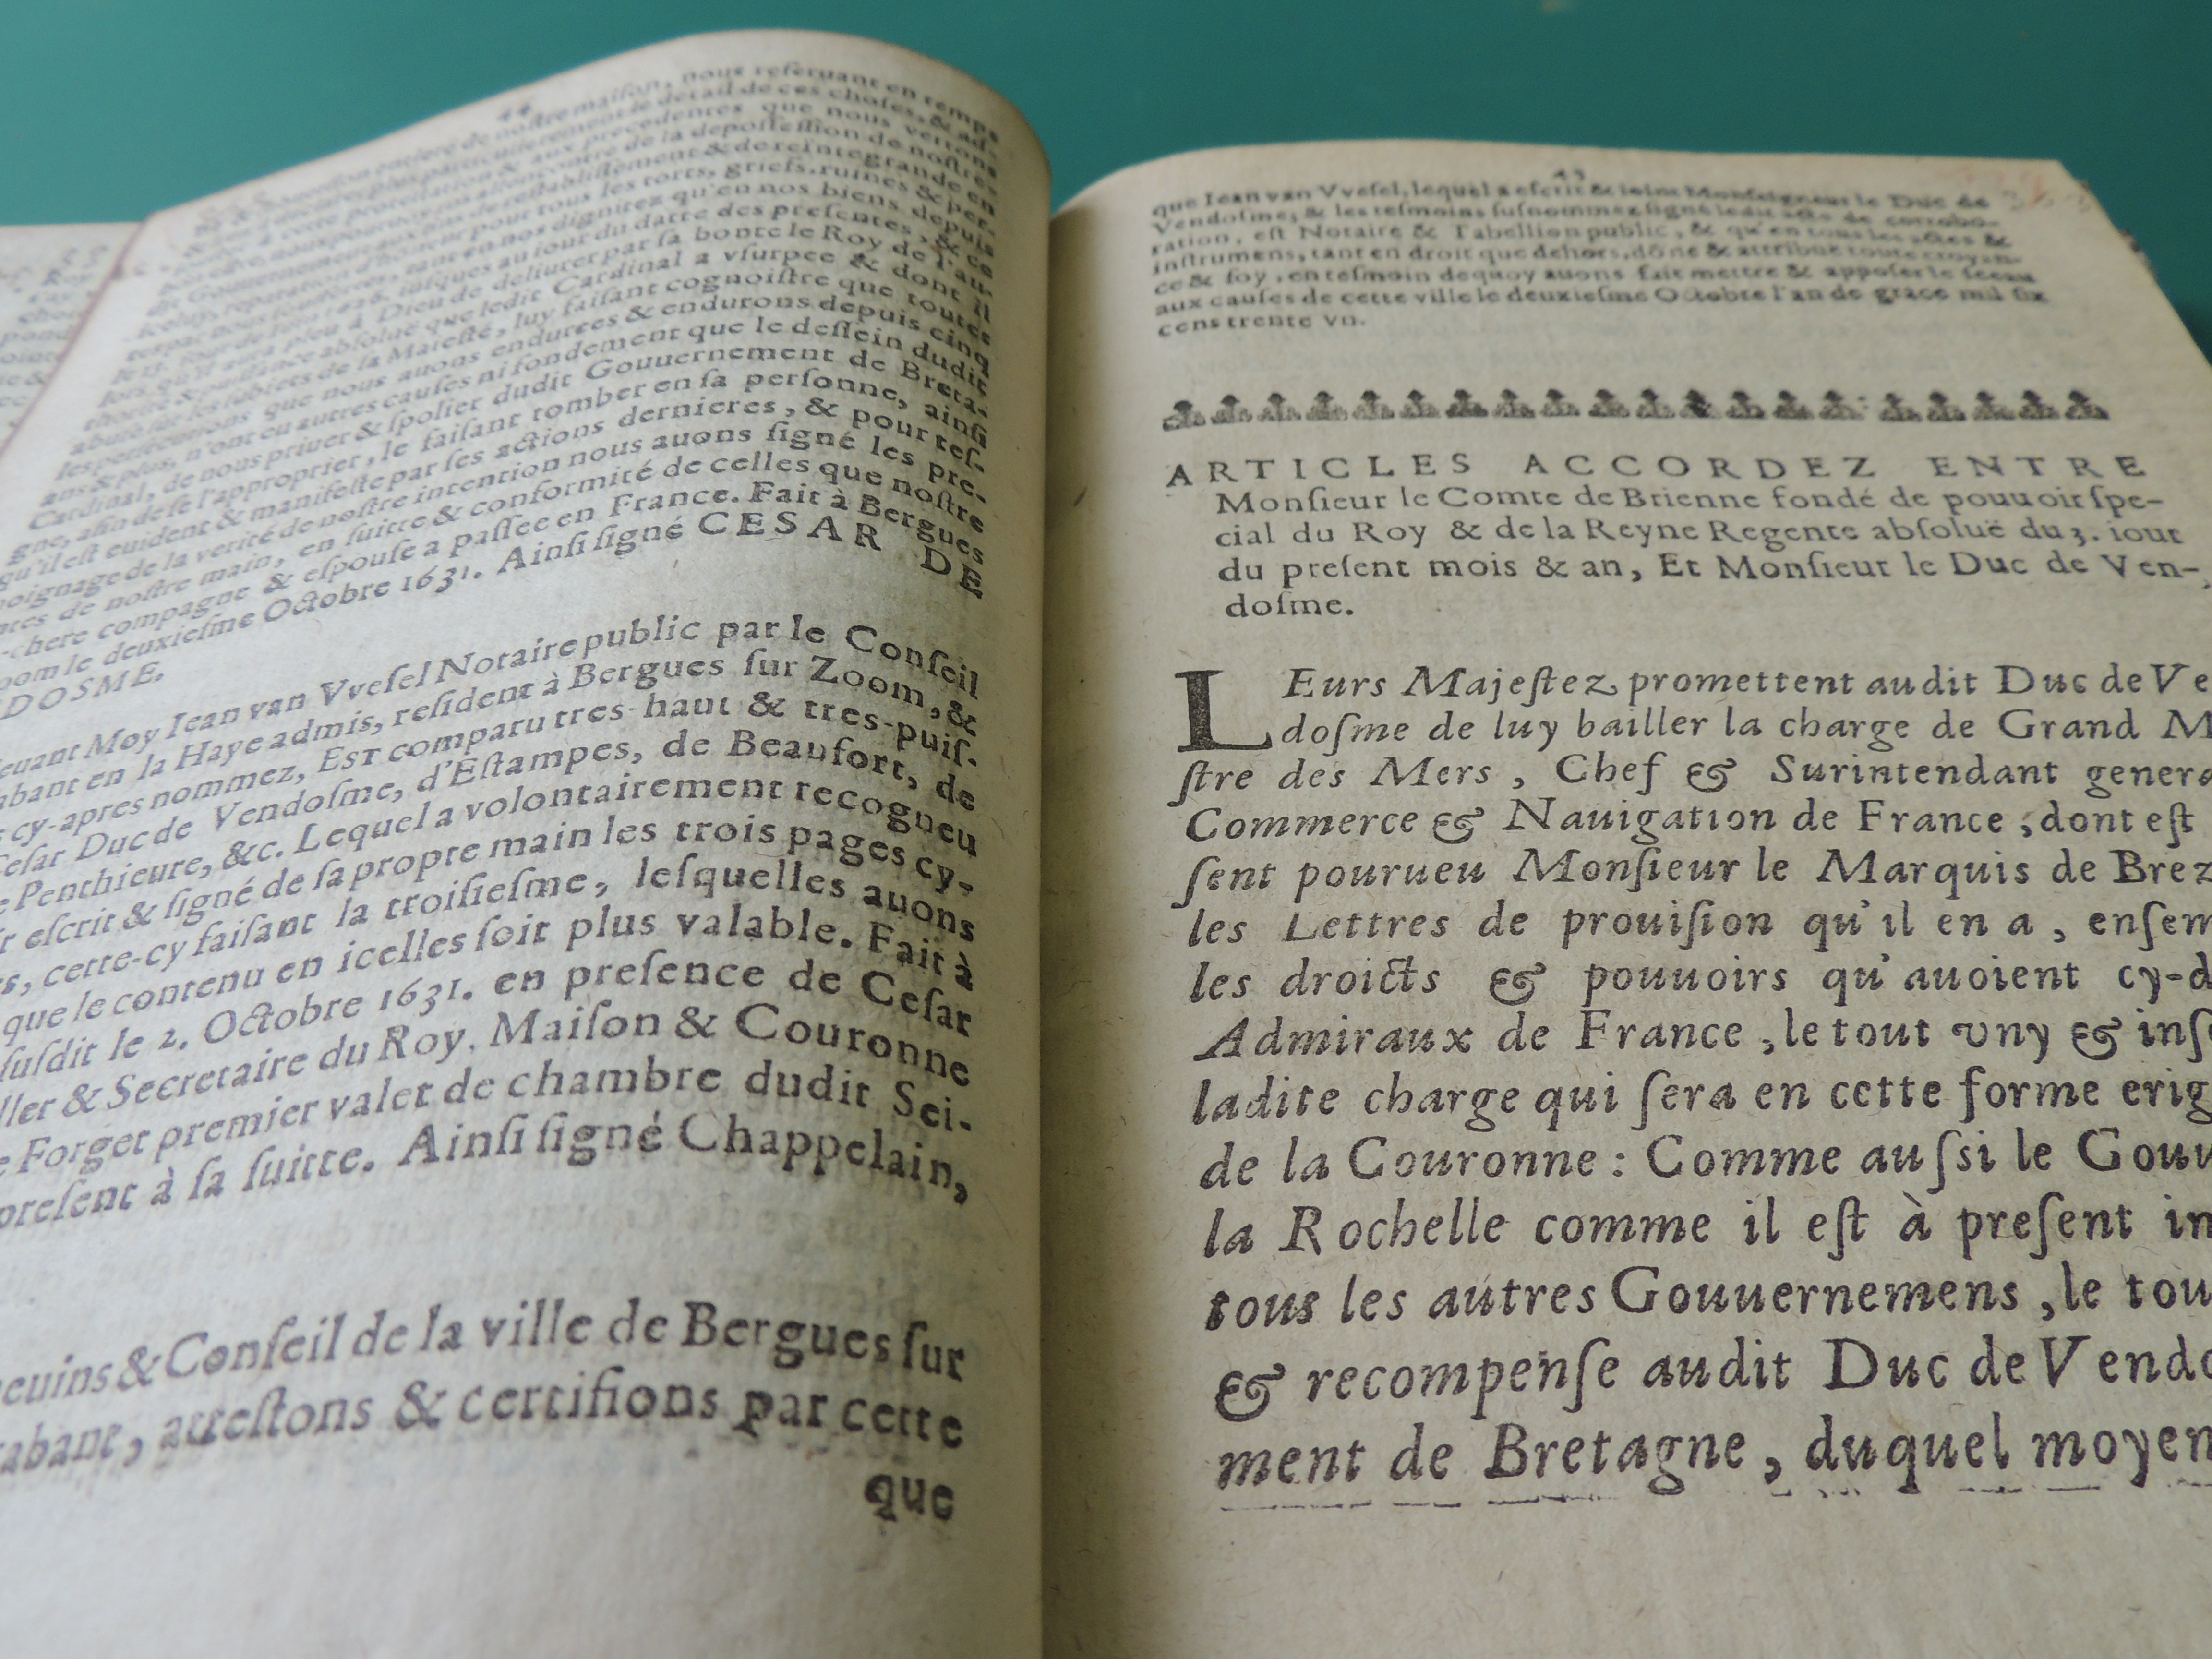 44
de nostre maison, nous reseruant en temps
plus particulierement le detail de ces choses, & ad-
à cette protestation & aux precedentes que nous verrons
de la depossession de nostre
de restablissement & de reintegrande en
pour tous les torts, griefs, ruines & per-
tant en nos dignitez qu'en nos biens depuis
iusques au iour du datte des presentes, & ce
a pleu à Dieu de deliurer par sa bonté le Roy de l'au-
absoluë que ledit Cardinal a vsurpee & dont il
abuse sur les subiets de sa Maiesté, luy faisant cognoistre que toutes
les persecutions que nous auons endurees & endurons depuis cinq
ans & plus, n'ont eu autres causes ni fondement que le dessein dudit
Cardinal, de nous priuer & spolier dudit Gouuernement de Breta-
gne, afin de se l'approprier, le faisant tomber en sa personne, ainsi
qu'il est euident & manifeste par ses actions dernieres, & pour tes-
moignage de la verité de nostre intention nous auons signé les pre-
ntes de nostre main, en suitte & conformité de celles que nostre
-chere compagne & espouse a passee en France. Fait à Bergues
oom le deuxiesme Octobre 1631. Ainsi signé CESAR DE
DOSME.
euant Moy Iean van Vvesel Notaire public par le Conseil
abant en la Haye admis, resident à Bergues sur Zoom, &
s cy-apres nommez, EST comparu tres-haut & tres-puis-
Cesar Duc de Vendosme, d'Estampes, de Beaufort, de
e Penthieure, &c. Lequel a volontairement recogneu
ir escrit & signé de sa propre main les trois pages cy-
s, cette-cy faisant la troisiesme, lesquelles auons
que le contenu en icelles soit plus valable. Fait à
susdit le 2. Octobre 1631. en presence de Cesar
ller & Secretaire du Roy, Maison & Couronne
e Forget premier valet de chambre dudit Sei-
present à sa suitte. Ainsi signé Chappelain,
euins & Conseil de la ville de Bergues sur
rabant, attestons & certifions par cette
que
45
que Iean van Vvesel, lequel a escrit & ioint Monseigneur le Duc de
Vendosme, & les tesmoins susnommez signé ledit acte de corrobo-
ration, est Notaire & Tabellion public, & qu'en tous les actes &
instrumens, tant en droit que dehors, dõne & attribue toute croyan-
ce & foy, en tesmoin dequoy auons fait mettre & apposer le sceau
aux causes de cette ville le deuxiesme Octobre l'an de grace mil six
cens trente vn.
ARTICLES ACCORDEZ ENTRE
Monsieur le Comte de Brienne fondé de pouuoir spe-
cial du Roy & de la Reyne Regente absoluë du 3. iour
du present mois & an, Et Monsieur le Duc de Ven-
dosme.
LEurs Majestez promettent audit Duc de Ve
dosme de luy bailler la charge de Grand M
stre des Mers, Chef & Surintendant genera
Commerce & Nauigation de France, dont est
sent pourueu Monsieur le Marquis de Brez
les Lettres de prouision qu'il en a, ensem
les droicts & pouuoirs qu'auoient cy-d
Admiraux de France, le tout vny & inse
ladite charge qui sera en cette forme erig
de la Couronne: Comme aussi le Gouu
la Rochelle comme il est à present in
tous les autres Gouuernemens, le tou
& recompense audit Duc de Vendo
ment de Bretagne, duquel moyen